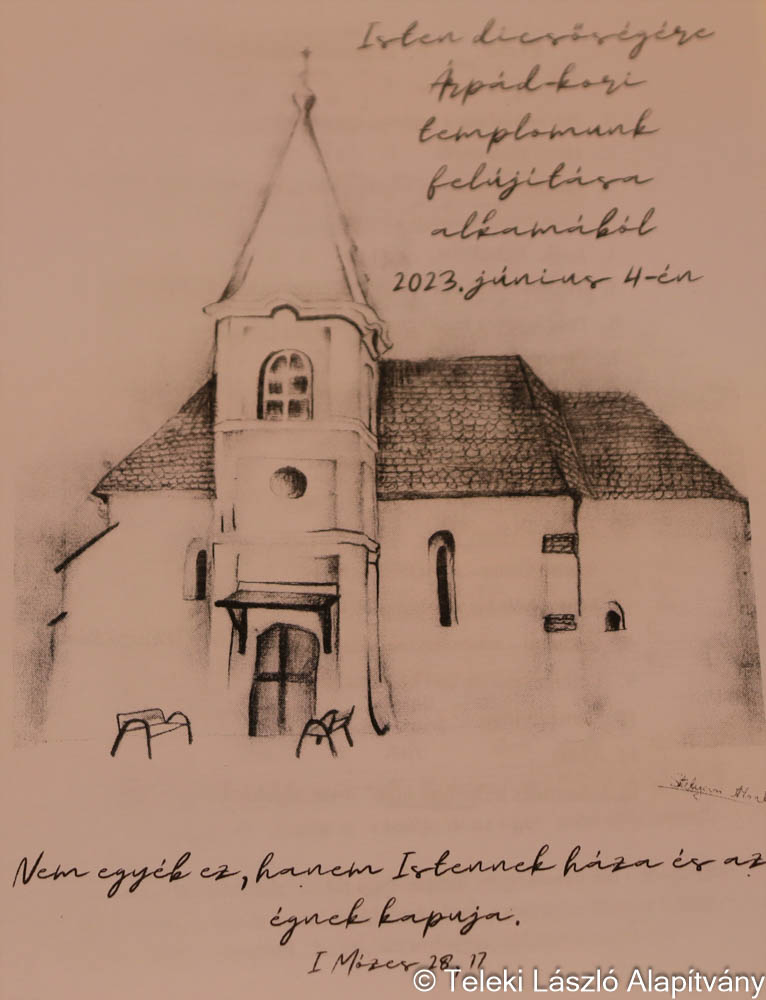 Isten dicsőségére
Árpád-kori
templomunk
felújítása
alkamából
2023. június 4-én
Nem egyéb ez, hanem Istennek háza és az
égnek kapuja.
I Mózes 28, 17
© Teleki László Alapítvány